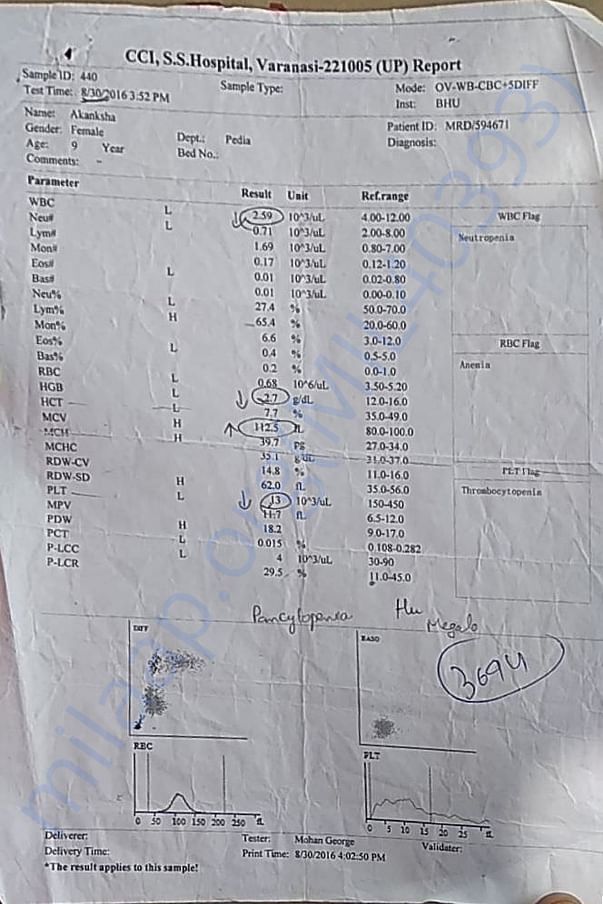 CCI, S.S.Hospital, Varanasi-221005 (UP) Report
Sample ID: 440 Sample Type: Mode: OV-WB-CBC+5DIFF
Test Time: 8/30/2016 3:52 PM Inst: BHU
Name: Akanksha Patient ID: MRD/594671
Gender: Female Dept.: Pedia Diagnosis:
Age: 9 Year Bed No.:
Comments: -
Parameter Result Unit Ref.range
WBC L 2.59 10^3/uL 4.00-12.00 WBC Flag
Neu# L 0.71 10^3/uL 2.00-8.00 Neutropenia
Lym# 1.69 10^3/uL 0.80-7.00
Mon# 0.17 10^3/uL 0.12-1.20
Eos# L 0.01 10^3/uL 0.02-0.80
Bas# 0.01 10^3/uL 0.00-0.10
Neu% L 27.4 % 50.0-70.0
Lym% H 65.4 % 20.0-60.0
Mon% 6.6 % 3.0-12.0
Eos% L 0.4 % 0.5-5.0 RBC Flag
Bas% 0.2 % 0.0-1.0 Anemia
RBC L 0.68 10^6/uL 3.50-5.20
HGB L 2.7 g/dL 12.0-16.0
HCT L 7.7 % 35.0-49.0
MCV H 112.5 fL 80.0-100.0
MCH H 39.7 pg 27.0-34.0
MCHC 35.1 g/dL 31.0-37.0
RDW-CV 14.8 % 11.0-16.0 PLT Flag
RDW-SD H 62.0 fL 35.0-56.0 Thrombocytopenia
PLT L 13 10^3/uL 150-450
MPV 11.7 fL 6.5-12.0
PDW H 18.2 9.0-17.0
PCT L 0.015 % 0.108-0.282
P-LCC L 4 10^3/uL 30-90
P-LCR 29.5 % 11.0-45.0
Pancytopenia
Megalo
3694
DIFF BASO
RBC PLT
0 50 100 150 200 250 fL 0 5 10 15 20 25 fL
Deliverer: Tester: Mohan George Validater:
Delivery Time: Print Time: 8/30/2016 4:02:50 PM
*The result applies to this sample!